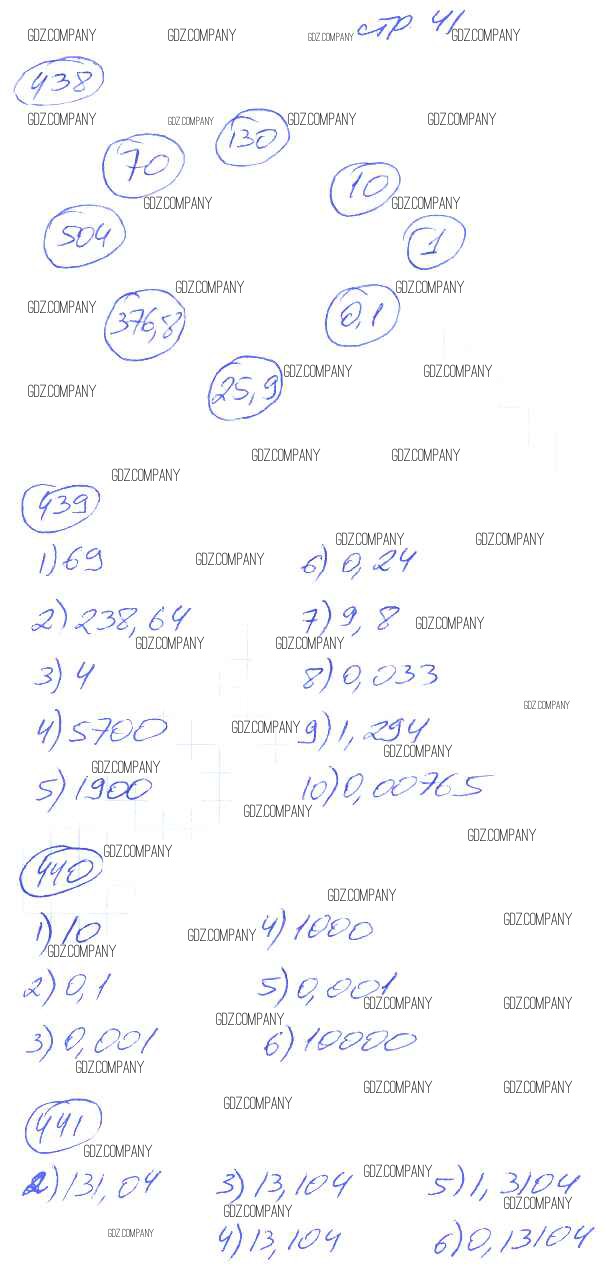 стр 41
GDZ.COMPANY GDZ.COMPANY GDZ.COMPANY GDZ.COMPANY
438
GDZ.COMPANY GDZ.COMPANY GDZ.COMPANY GDZ.COMPANY
130
70
10
GDZ.COMPANY GDZ.COMPANY
504
1
GDZ.COMPANY GDZ.COMPANY
GDZ.COMPANY
376,8
0,1
GDZ.COMPANY GDZ.COMPANY
25,9
GDZ.COMPANY
GDZ.COMPANY GDZ.COMPANY
GDZ.COMPANY
439
GDZ.COMPANY GDZ.COMPANY
1) 69 GDZ.COMPANY 6) 0,24
2) 238,64 7) 9,8 GDZ.COMPANY
GDZ.COMPANY GDZ.COMPANY
3) 4 8) 0,033
GDZ.COMPANY
4) 5700 GDZ.COMPANY 9) 1,294
GDZ.COMPANY
GDZ.COMPANY
5) 1900 10) 0,00765
GDZ.COMPANY
GDZ.COMPANY
GDZ.COMPANY
440
GDZ.COMPANY
GDZ.COMPANY
1) 10 GDZ.COMPANY 4) 1000
GDZ.COMPANY
2) 0,1 5) 0,001
GDZ.COMPANY GDZ.COMPANY
GDZ.COMPANY
3) 0,001 6) 10000
GDZ.COMPANY
GDZ.COMPANY GDZ.COMPANY
GDZ.COMPANY
441
GDZ.COMPANY
GDZ.COMPANY
2) 131,04 3) 13,104 5) 1,3104
GDZ.COMPANY GDZ.COMPANY
GDZ.COMPANY
4) 13,104 6) 0,13104